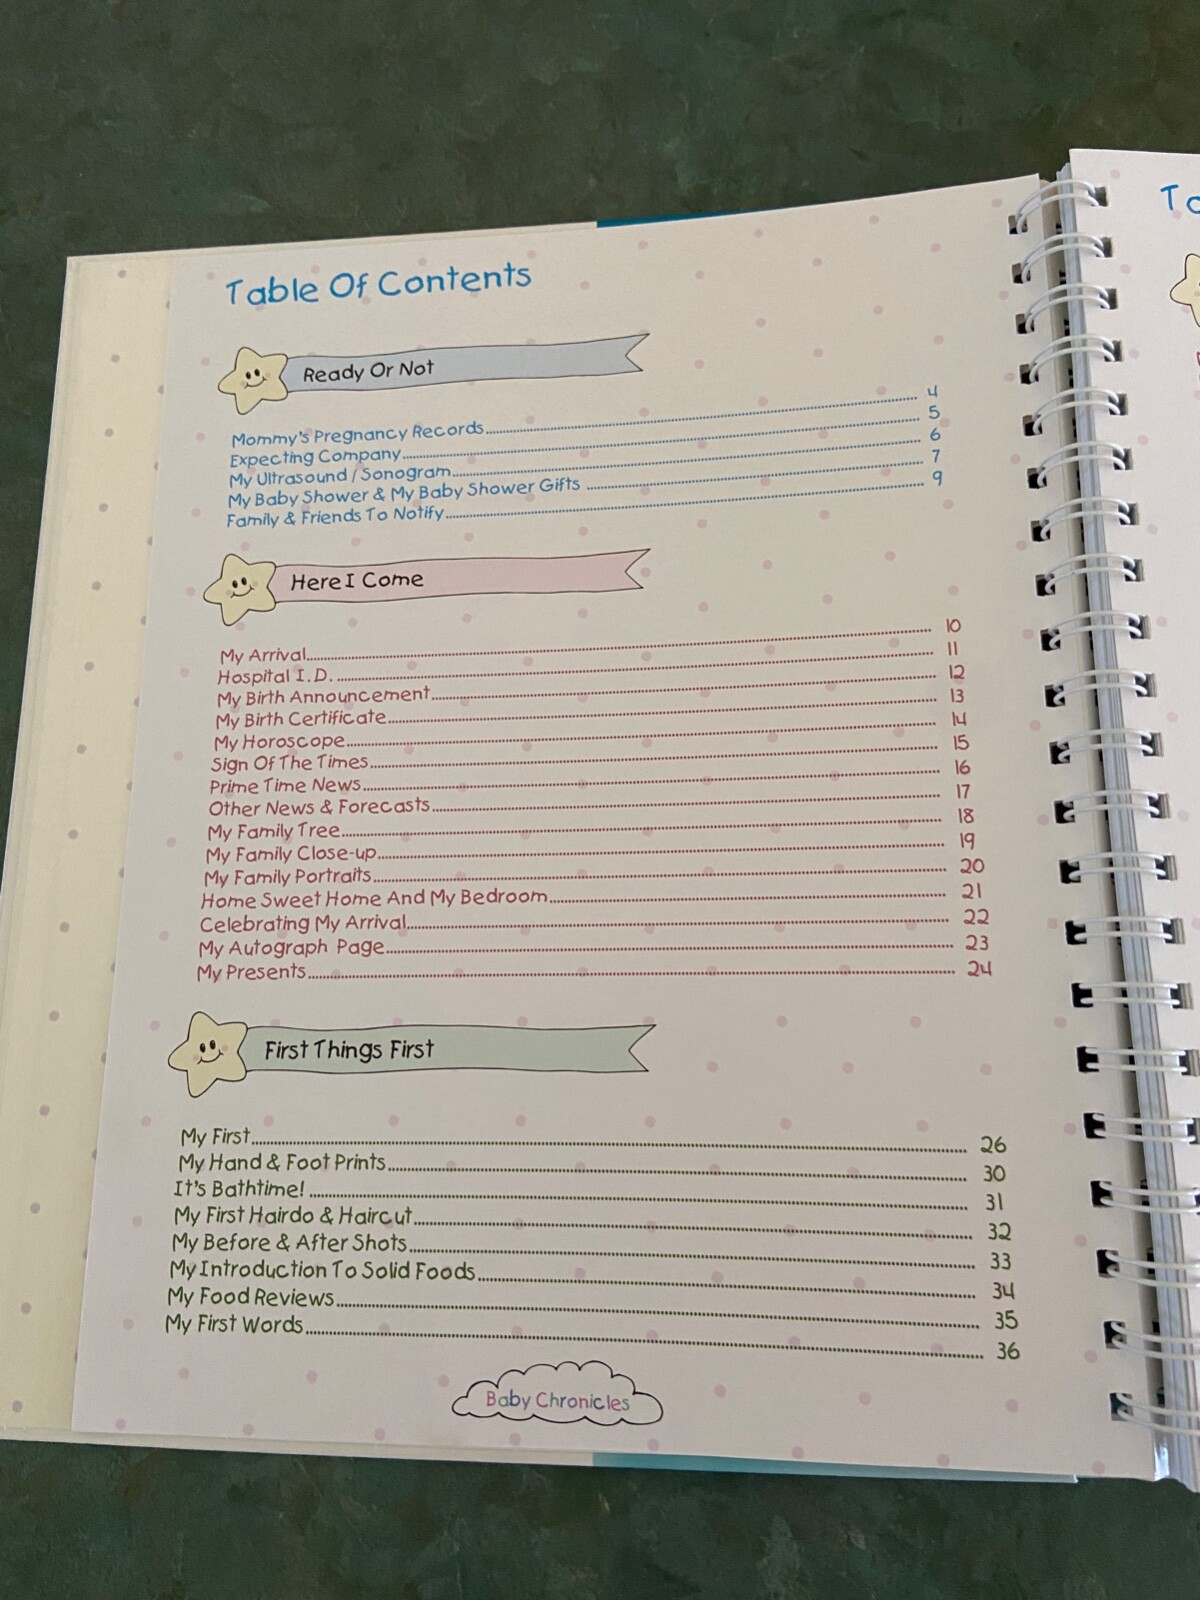 Table Of Contents
Ready Or Not
Mommy's Pregnancy Records 4
Expecting Company 5
My Ultrasound / Sonogram 6
My Baby Shower & My Baby Shower Gifts 7
Family & Friends To Notify 9
Here I Come
My Arrival 10
Hospital I.D. 11
My Birth Announcement 12
My Birth Certificate 13
My Horoscope 14
Sign Of The Times 15
Prime Time News 16
Other News & Forecasts 17
My Family Tree 18
My Family Close-up 19
My Family Portraits 20
Home Sweet Home And My Bedroom 21
Celebrating My Arrival 22
My Autograph Page 23
My Presents 24
First Things First
My First 26
My Hand & Foot Prints 30
It's Bathtime! 31
My First Hairdo & Haircut 32
My Before & After Shots 33
My Introduction To Solid Foods 34
My Food Reviews 35
My First Words 36
Baby Chronicles